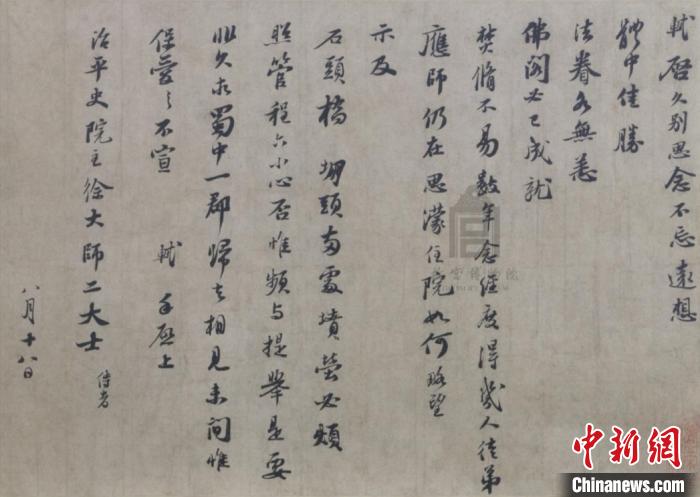 軾啓久别思念不忘遠想
體中佳勝
法眷各無恙
佛閣必已成就
焚脩不易數年念經度得幾人徒弟
應師仍在思濛住院如何略望
示及
石頭橋 堋頭兩處墳塋必煩
照管程六小心否惟頻与提舉是要
非久求蜀中一郡歸去相見未間惟
保愛之不宣 軾手啓上
治平史院主徐大師二大士 侍者
八月十八日
中新网
Chinanews.com